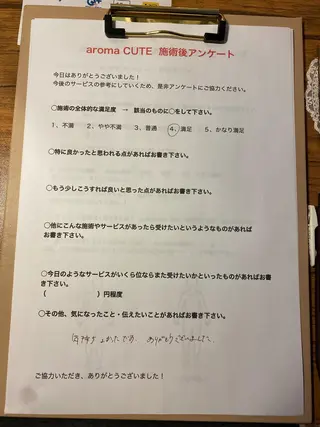 aroma CUTE 施術後アンケート
今日はありがとうございました！
今後のサービスの参考にしていくため、是非アンケートにご協力ください。
○施術の全体的な満足度 → 該当のものに○をして下さい。
1、不満 2、やや不満 3、普通 4、満足 5、かなり満足
○特に良かったと思われる点があればお書き下さい。
○もう少しこうすれば良いと思った点があればお書き下さい。
○他にこんな施術やサービスがあったら受けたいというようなものがあれば
お書き下さい。
○今日のようなサービスがいくら位ならまた受けたいかといったものがあればお書
き下さい。
（ ）円程度
○その他、気になったこと・伝えたいことがあればお書き下さい。
よかったです。 ありがとうございました。
ご協力いただき、ありがとうございました！